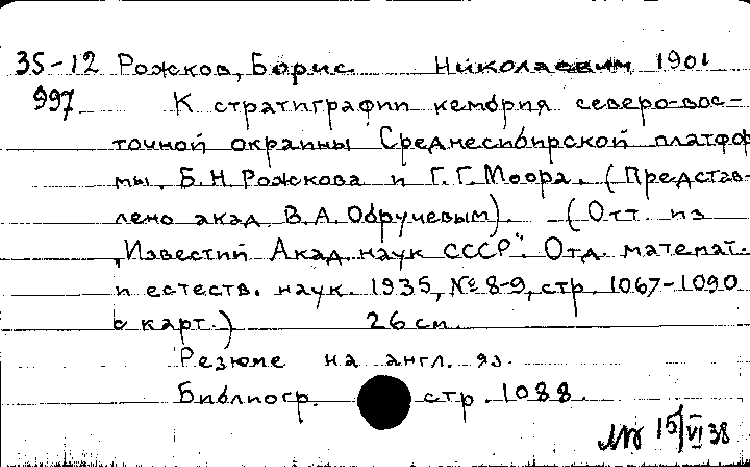 35-12 Рожков, Борис Николаевич 1901
997 К стратиграфии кембрия северо-вос-
точной окраины Среднесибирской платфор
мы. Б.Н. Рожкова и Г.Г. Моора. (Представ-
лено акад. В.А. Обручевым). (Отт. из
„Известий Акад. наук СССР". Отд. математ.
и естеств. наук. 1935, № 8-9, стр. 1067-1090
с карт.) 26 см.
Резюме на англ. яз.
Библиогр. стр. 1088.
15/VI 38